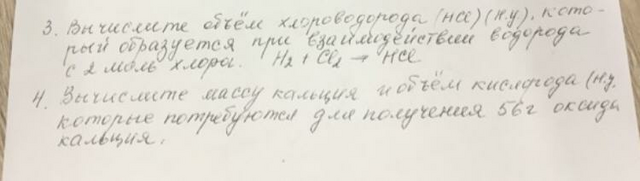 3. Вычислите объём хлороводорода (HCl) (н.у), кото-
рый образуется при взаимодействии водорода
с 2 моль хлора. H₂ + Cl₂ → HCl
4. Вычислите массу кальция и объём кислорода (н.у.
которые потребуются для получения 56г оксида
кальция.